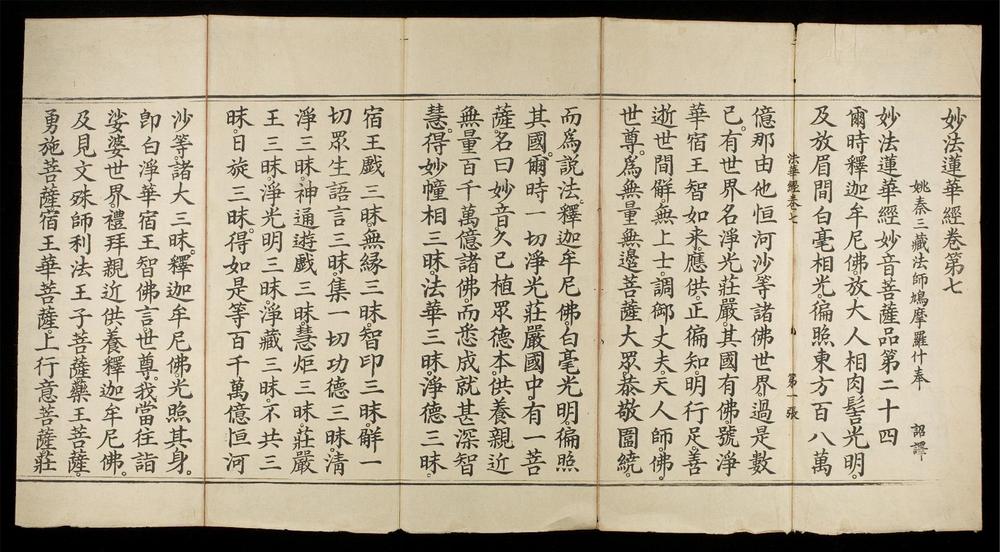 妙法蓮華經卷第七
姚秦三藏法師鳩摩羅什奉　詔譯
妙法蓮華經妙音菩薩品第二十四
爾時釋迦牟尼佛。放大人相肉髻光明。
及放眉間白毫相光。徧照東方百八萬
法華經卷七　第一張
億那由他恒河沙等諸佛世界。過是數
已。有世界名淨光莊嚴。其國有佛。號淨
華宿王智如來。應供。正徧知。明行足。善
逝世間解。無上士。調御丈夫。天人師。佛。
世尊。爲無量無邊菩薩大眾。恭敬圍繞。
而爲說法。釋迦牟尼佛。白毫光明。徧照
其國。爾時一切淨光莊嚴國中。有一菩
薩。名曰妙音。久已植眾德本。供養親近
無量百千萬億諸佛。而悉成就甚深智
慧。得妙幢相三昧。法華三昧。淨德三昧。
宿王戲三昧。無緣三昧。智印三昧。解一
切眾生語言三昧。集一切功德三昧。清
淨三昧。神通遊戲三昧。慧炬三昧。莊嚴
王三昧。淨光明三昧。淨藏三昧。不共三
昧。日旋三昧。得如是等百千萬億恒河
沙等。諸大三昧。釋迦牟尼佛。光照其身。
卽白淨華宿王智佛言。世尊。我當往詣
娑婆世界。禮拜親近供養釋迦牟尼佛。
及見文殊師利法王子菩薩。藥王菩薩。
勇施菩薩。宿王華菩薩。上行意菩薩。莊